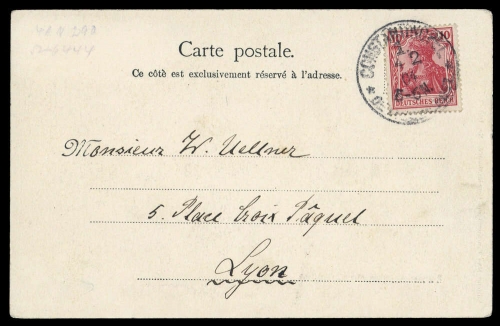 Carte postale.
Ce côtè est exclusivement réservé à l'adresse.
CONSTANTINOPEL
10
DEUTSCHES REICH
Monsieur W. Uellner
5. Place Croix Pâquet
Lyon